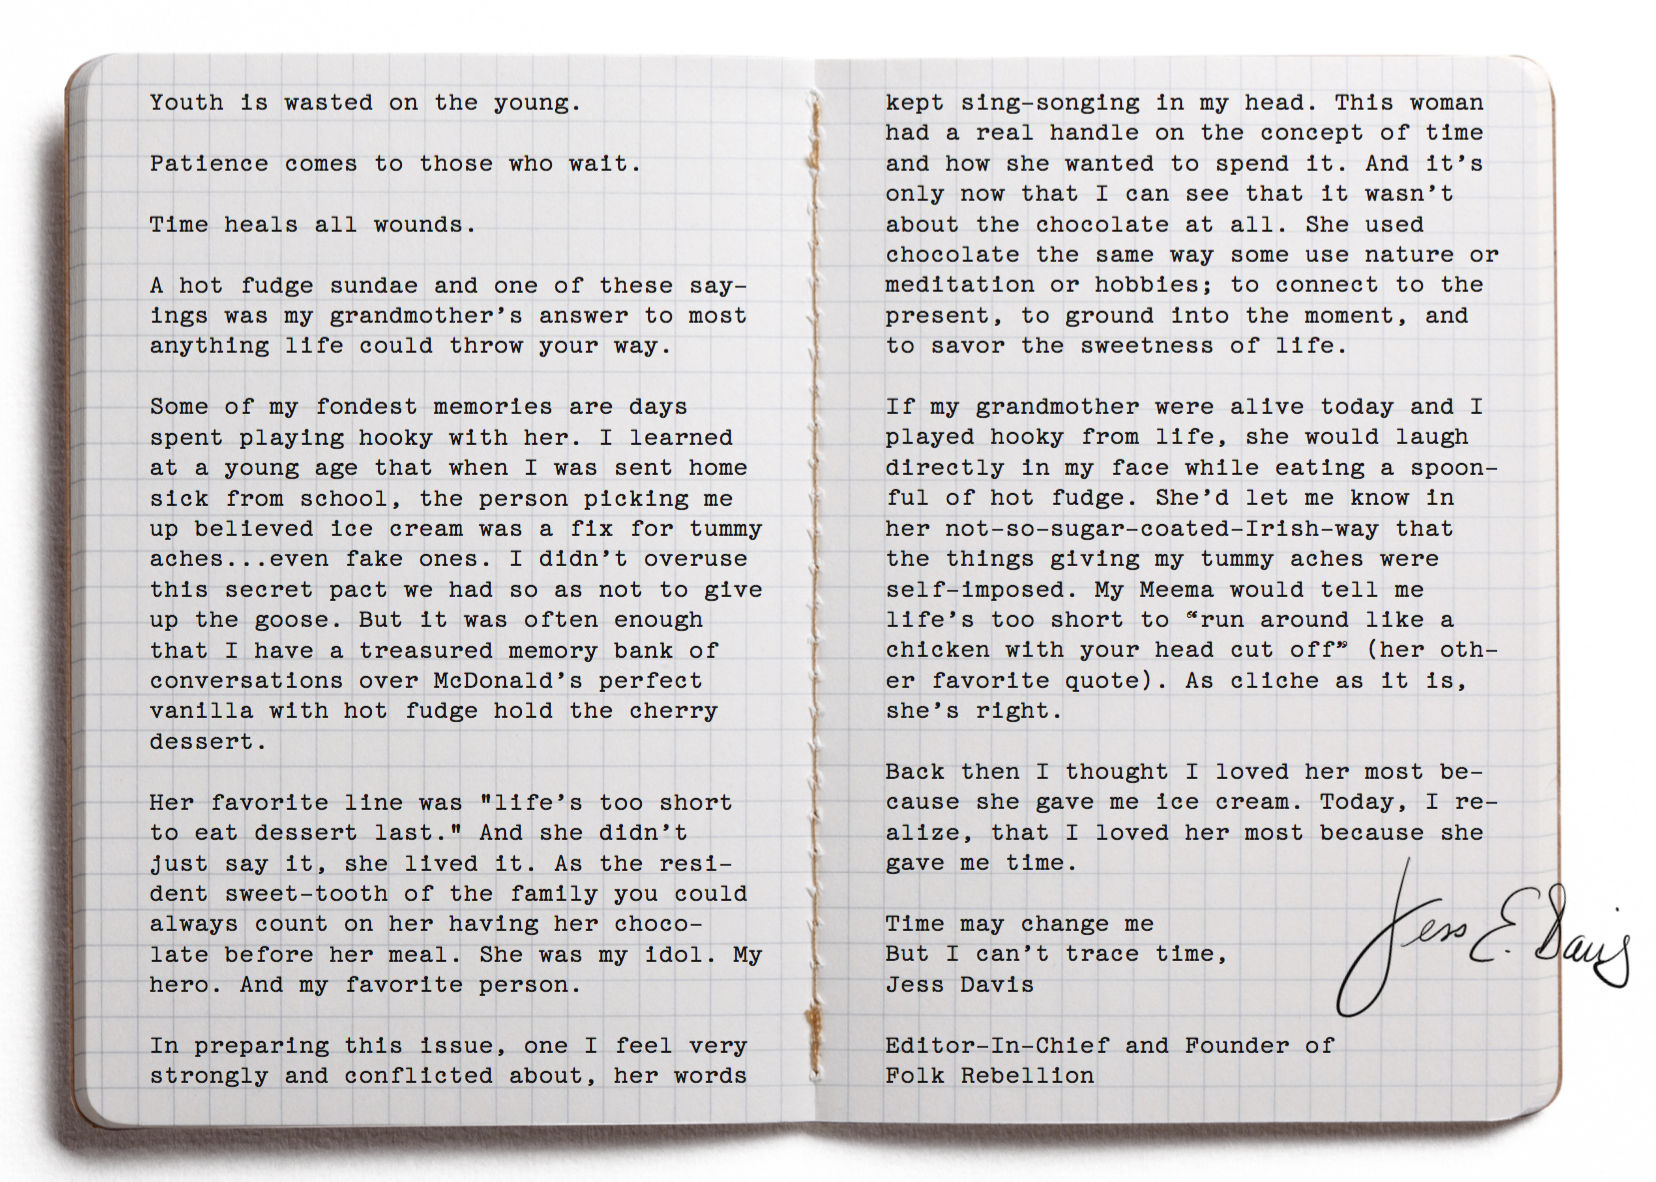 Youth is wasted on the young.
Patience comes to those who wait.
Time heals all wounds.
A hot fudge sundae and one of these say-
ings was my grandmother's answer to most
anything life could throw your way.
Some of my fondest memories are days
spent playing hooky with her. I learned
at a young age that when I was sent home
sick from school, the person picking me
up believed ice cream was a fix for tummy
aches...even fake ones. I didn't overuse
this secret pact we had so as not to give
up the goose. But it was often enough
that I have a treasured memory bank of
conversations over McDonald's perfect
vanilla with hot fudge hold the cherry
dessert.
Her favorite line was "life's too short
to eat dessert last." And she didn't
just say it, she lived it. As the resi-
dent sweet-tooth of the family you could
always count on her having her choco-
late before her meal. She was my idol. My
hero. And my favorite person.
In preparing this issue, one I feel very
strongly and conflicted about, her words
kept sing-songing in my head. This woman
had a real handle on the concept of time
and how she wanted to spend it. And it's
only now that I can see that it wasn't
about the chocolate at all. She used
chocolate the same way some use nature or
meditation or hobbies; to connect to the
present, to ground into the moment, and
to savor the sweetness of life.
If my grandmother were alive today and I
played hooky from life, she would laugh
directly in my face while eating a spoon-
ful of hot fudge. She'd let me know in
her not-so-sugar-coated-Irish-way that
the things giving my tummy aches were
self-imposed. My Meema would tell me
life's too short to “run around like a
chicken with your head cut off” (her oth-
er favorite quote). As cliche as it is,
she's right.
Back then I thought I loved her most be-
cause she gave me ice cream. Today, I re-
alize, that I loved her most because she
gave me time.
Time may change me
But I can't trace time,
Jess Davis
Jess E. Davis
Editor-In-Chief and Founder of
Folk Rebellion